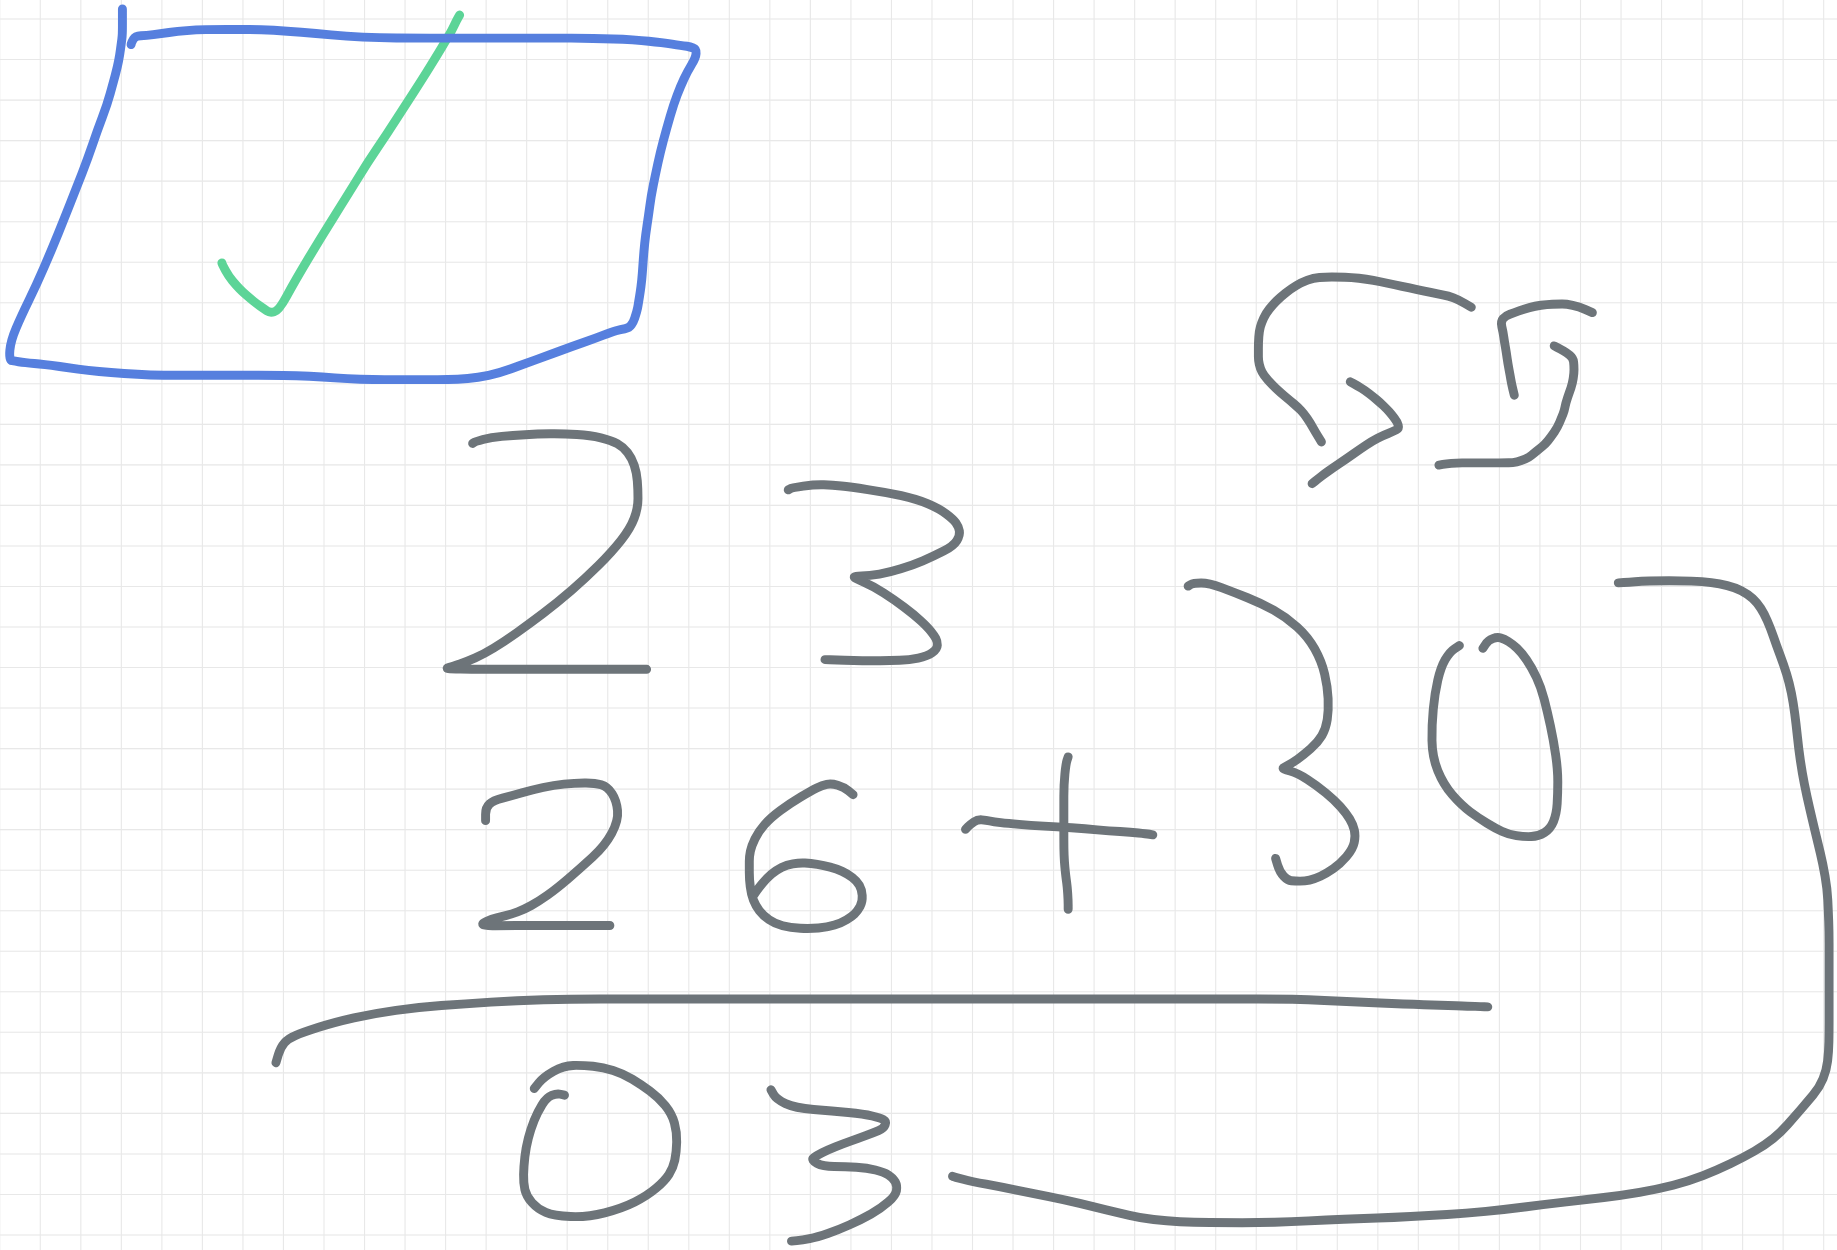 23
26 + 30
03